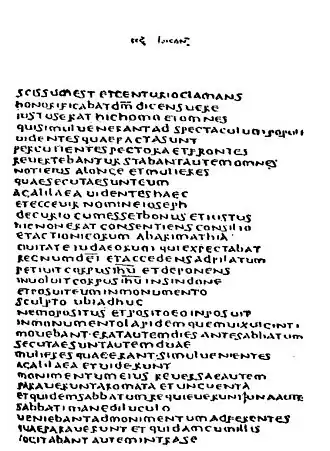 sec lucan
scissum est et centurio clamans
honorificabat dm dicens uere
iustus erat hic homo et omnes
qui simul uenerant ad spectaculum populi
uidentes quae facta sunt
percutientes pectora et frontes
reuertebantur stabant autem omnes
noti eius a longe et mulieres
quae secutae sunt eum
a galilaea uidentes haec
et ecce uir nomine ioseph
decurio cum esset bonus et iustus
hic non erat consentiens consilio
et actioni eorum ab arimathia
ciuitate iudaeorum qui expectabat
regnum dei et accedens ad pilatum
petiuit corpus ihu et deponens
inuoluit corpus ihu in sindone
et posuit eum in monumento
sculpto ubi adhuc
nemo positus et posito eo inposuit
in monumento lapidem quem uix uiginti
mouebant erat autem dies ante sabbatum
secutae sunt autem duae
mulieres quae erant simul uenientes
a galilaea et uiderunt
monimentum eius reuersae autem
parauerunt aromata et unguenta
et quidem sabbatum requieuerunt una aute
sabbati mane diluculo
ueniebant ad monimentum adferentes
quae parauerunt et quidam cum illis
cogitabant autem intra se